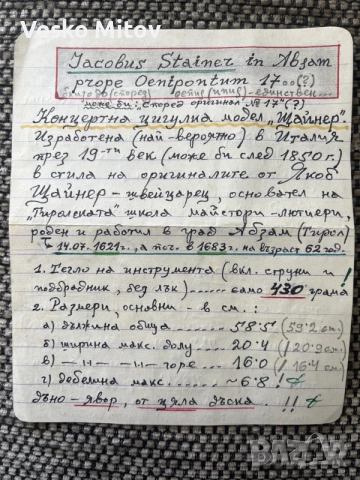 Vesko Mitov
Jacobus Stainer in Absam
prope Oenipontum 17oo(?)
близо до (според) - единствен...
може би: „Според оригинал № 17"(?)
Концертна цигулка модел „Щайнер".
Изработена (най-вероятно) в Италия
през 19-ти век (може би след 1850 г.)
в стила на оригиналите от Якоб
Щайнер – швейцарец, основател на
„Тиролската" школа майстори-лютиери,
роден и работил в град Абзам (Тирол)
14.07.1621г., а поч. в 1683г. на възраст 62 год.
1. Тегло на инструмента (вкл. струни и
подбрадник, без лък)...... само 430 грама!
2. Размери, основни - в см.:
а) дължина обща...... 58·5 (59'2 см.)
б) ширина макс. долу.... 20·4 (/ 20'9 см.)
в) –"– –"– горе... 16·0 (/ 16'4 см)
г) дебелина макс..... ~6·8!
дъно – явор, от цяла дъска. !!
bazar